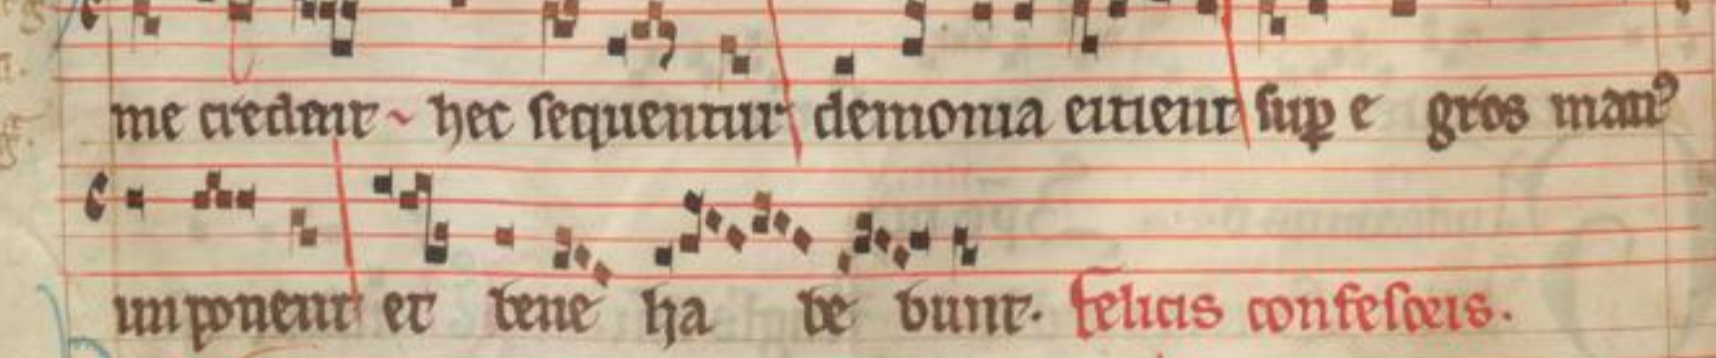 me credent ~ hec sequentur demonia eicient sup e gros man⁹
imponent et bene ha be bunt. Felicis confessoris.